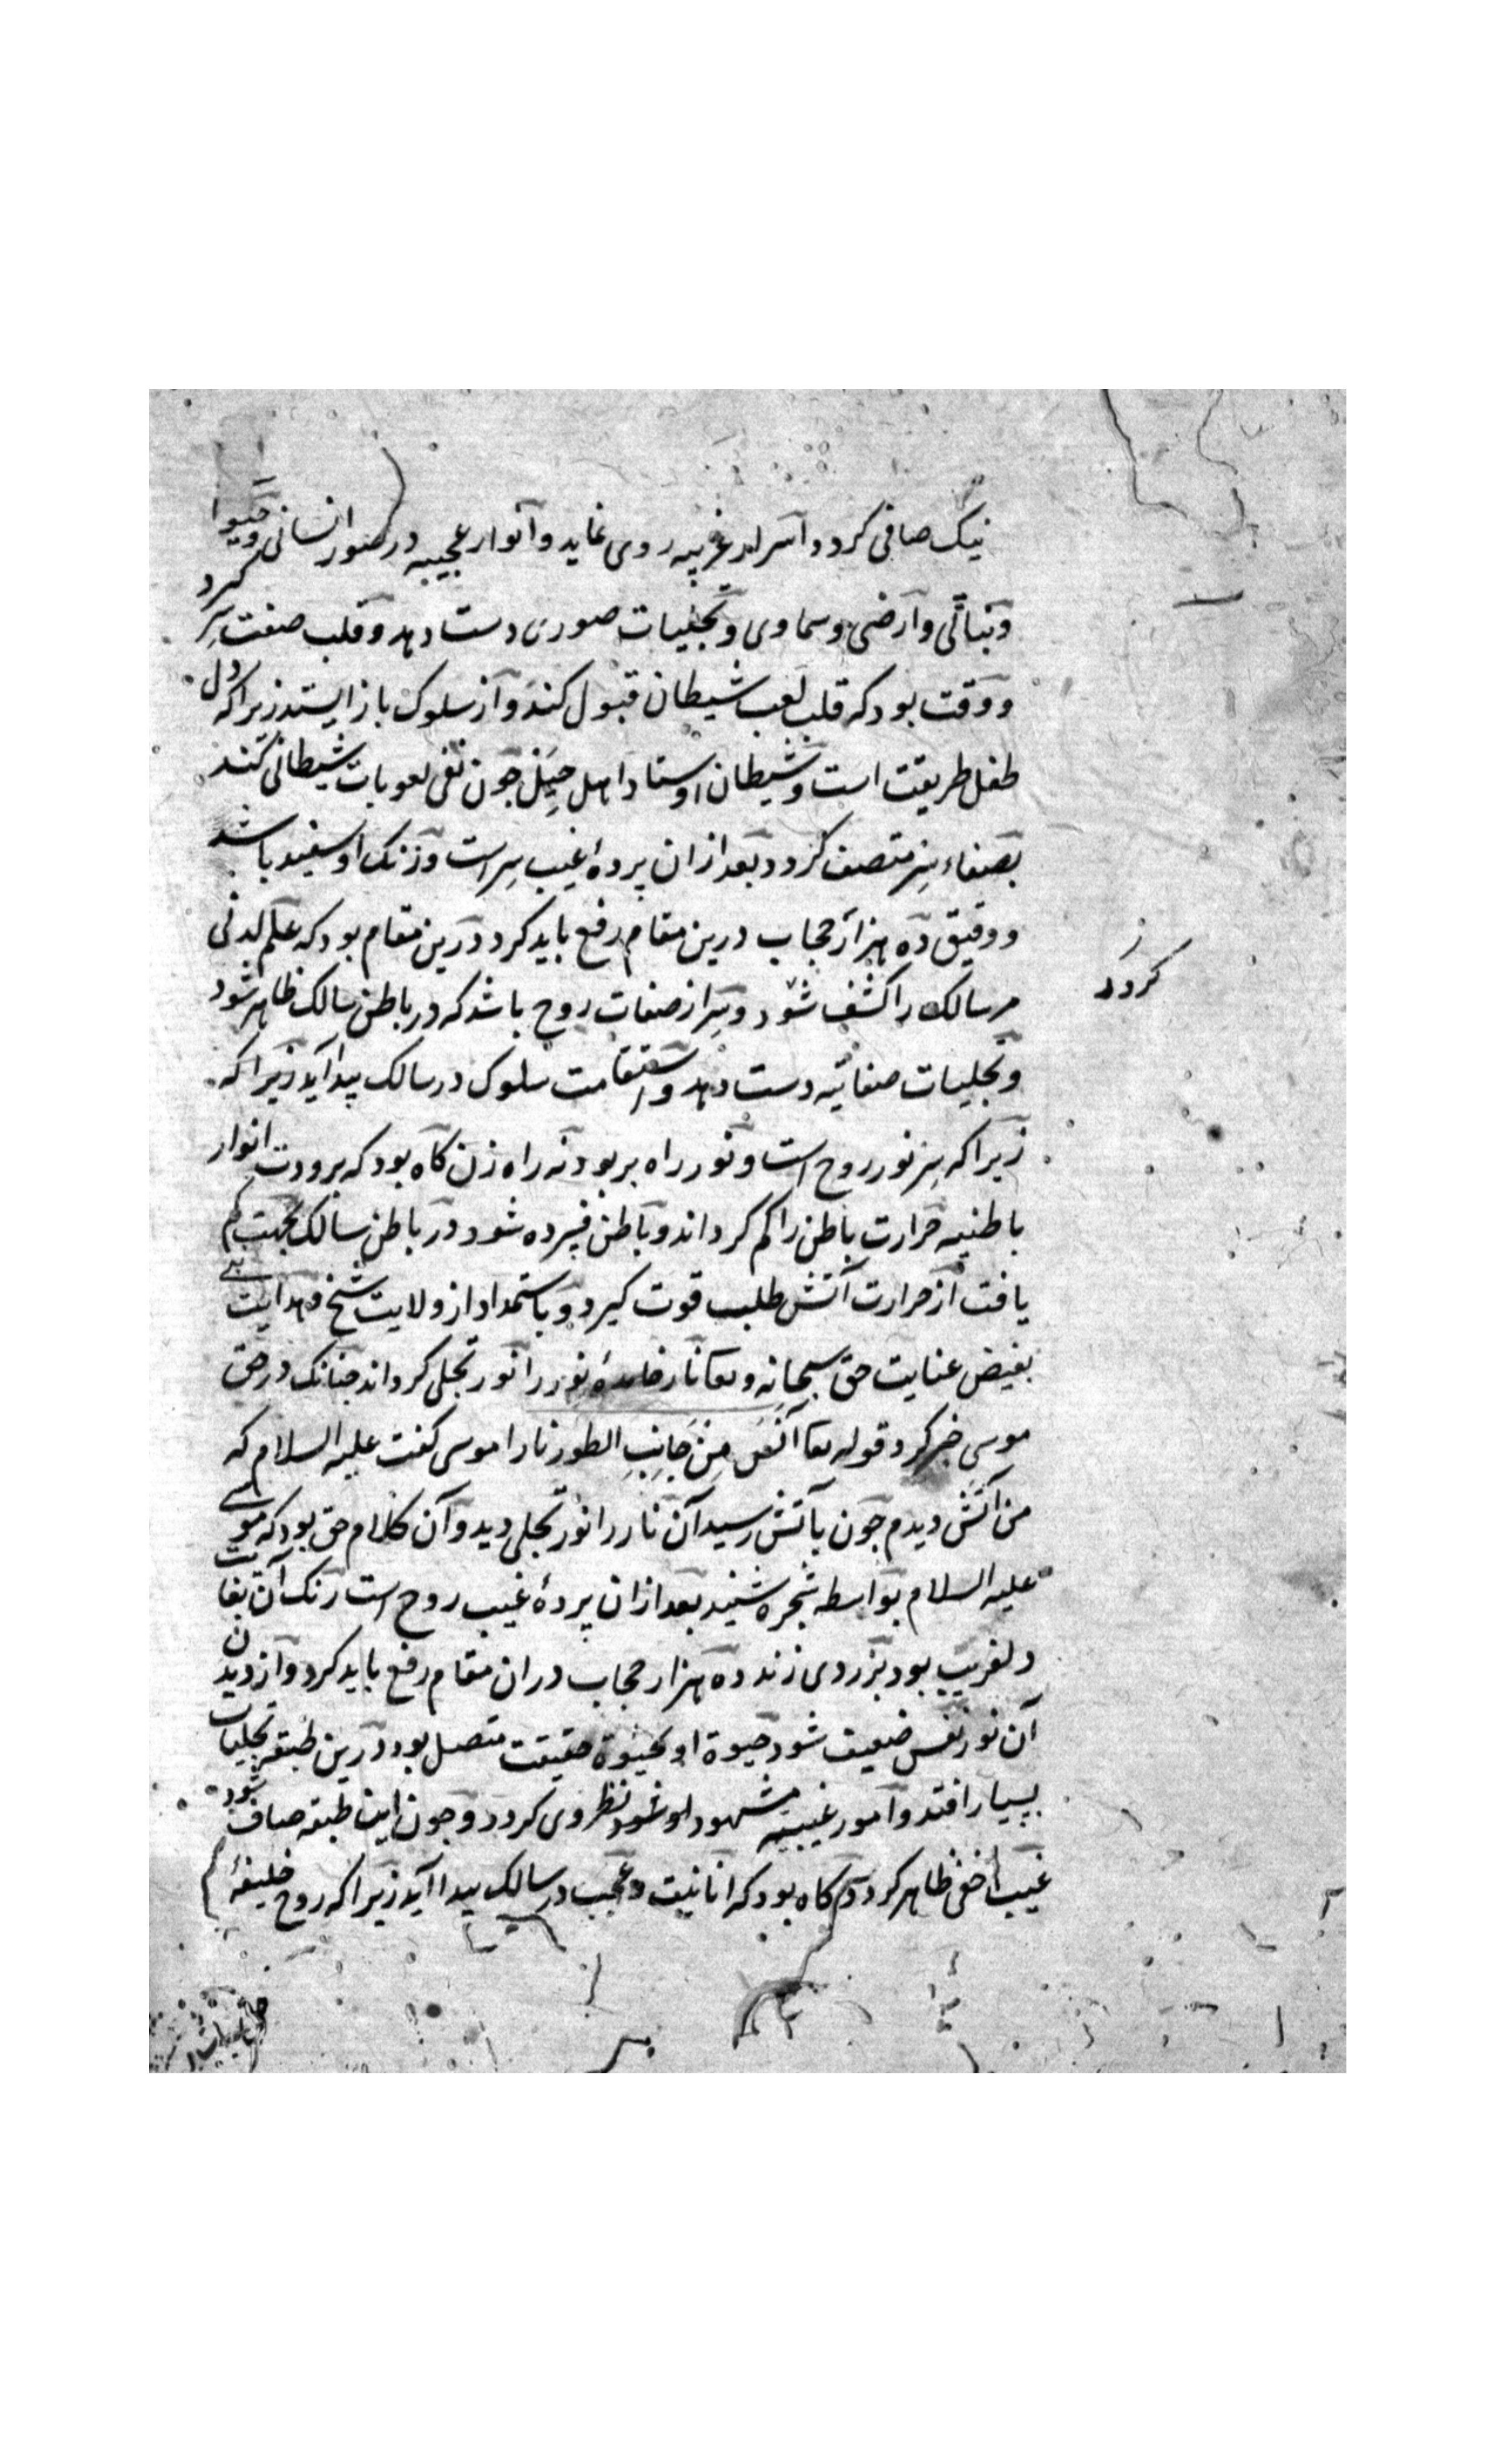 نیک صافی کردد و اسرار غریبه روی نماید و انوار عجیبه در صور انسانی و حیوا
و نباتی و ارضی و سماوی و تجلیات صوری دست دهد و قلب صفت سِر کیرد
و وقت بود که قلب لعب شیطان قبول کند و از سلوک باز ایستد زیرا که دل
طفل طریقت است و شیطان اوستاد اهل حیل جون نفی لعوبات شیطانی کند
بصفاء سِر متصف کردد بعد ازان پردهٔ غیب سِر است و رنک او سفید باشد
و دقیق ده هزار حجاب درین مقام رفع باید کرد و درین مقام بود که علم لدنی
مر سالک را کشف شود و سِر از صفات روح باشد که در باطن سالک ظاهر شود
و تجلیات صفاتیه دست دهد و استقامت سلوک در سالک پیدا آید زیرا که
زیرا که سِر نور روح است و نور راه بر بود نه راه زن کاه بود که برودت انوار
باطنیه حرارت باطن را کم کرداند و باطن فسرده شود در باطن سالک بجهت کم
یافت از حرارت آتش طلب قوت کیرد و باستمداد از ولایت شیخ و هدایت
بفیض عنایت حق سبحانه و تعا نار را نور تجلی کرداند جنانک در حق
موسی خبر کرد قوله تعا آنَسَ مِنْ جَانِبِ الطور نارا موسی کفت علیه السلام که
من آتش دیدم جون بآتش رسید آن نار را نور تجلی دید و آن کلام حق بود که موسی
علیه السلام بواسطه شجره شنید بعد ازان پردهٔ غیب روح است رنک آن بغایت
دلفریب بود بزردی زند ده هزار حجاب دران مقام رفع باید کرد و از دیدن
آن نور نفس ضعیف شود حیوة او بحیوة حقیقت متصل بود درین طبقه تجلیات
بسیار افتد و امور غیبیه مشهود او شود نظر وی کردد و جون این طبقه صاف شود
غیب اخفی ظاهر کردد و کاه بود که انانیت و عجب در سالک پیدا آید زیرا که روح خلیفهٔ
کردد